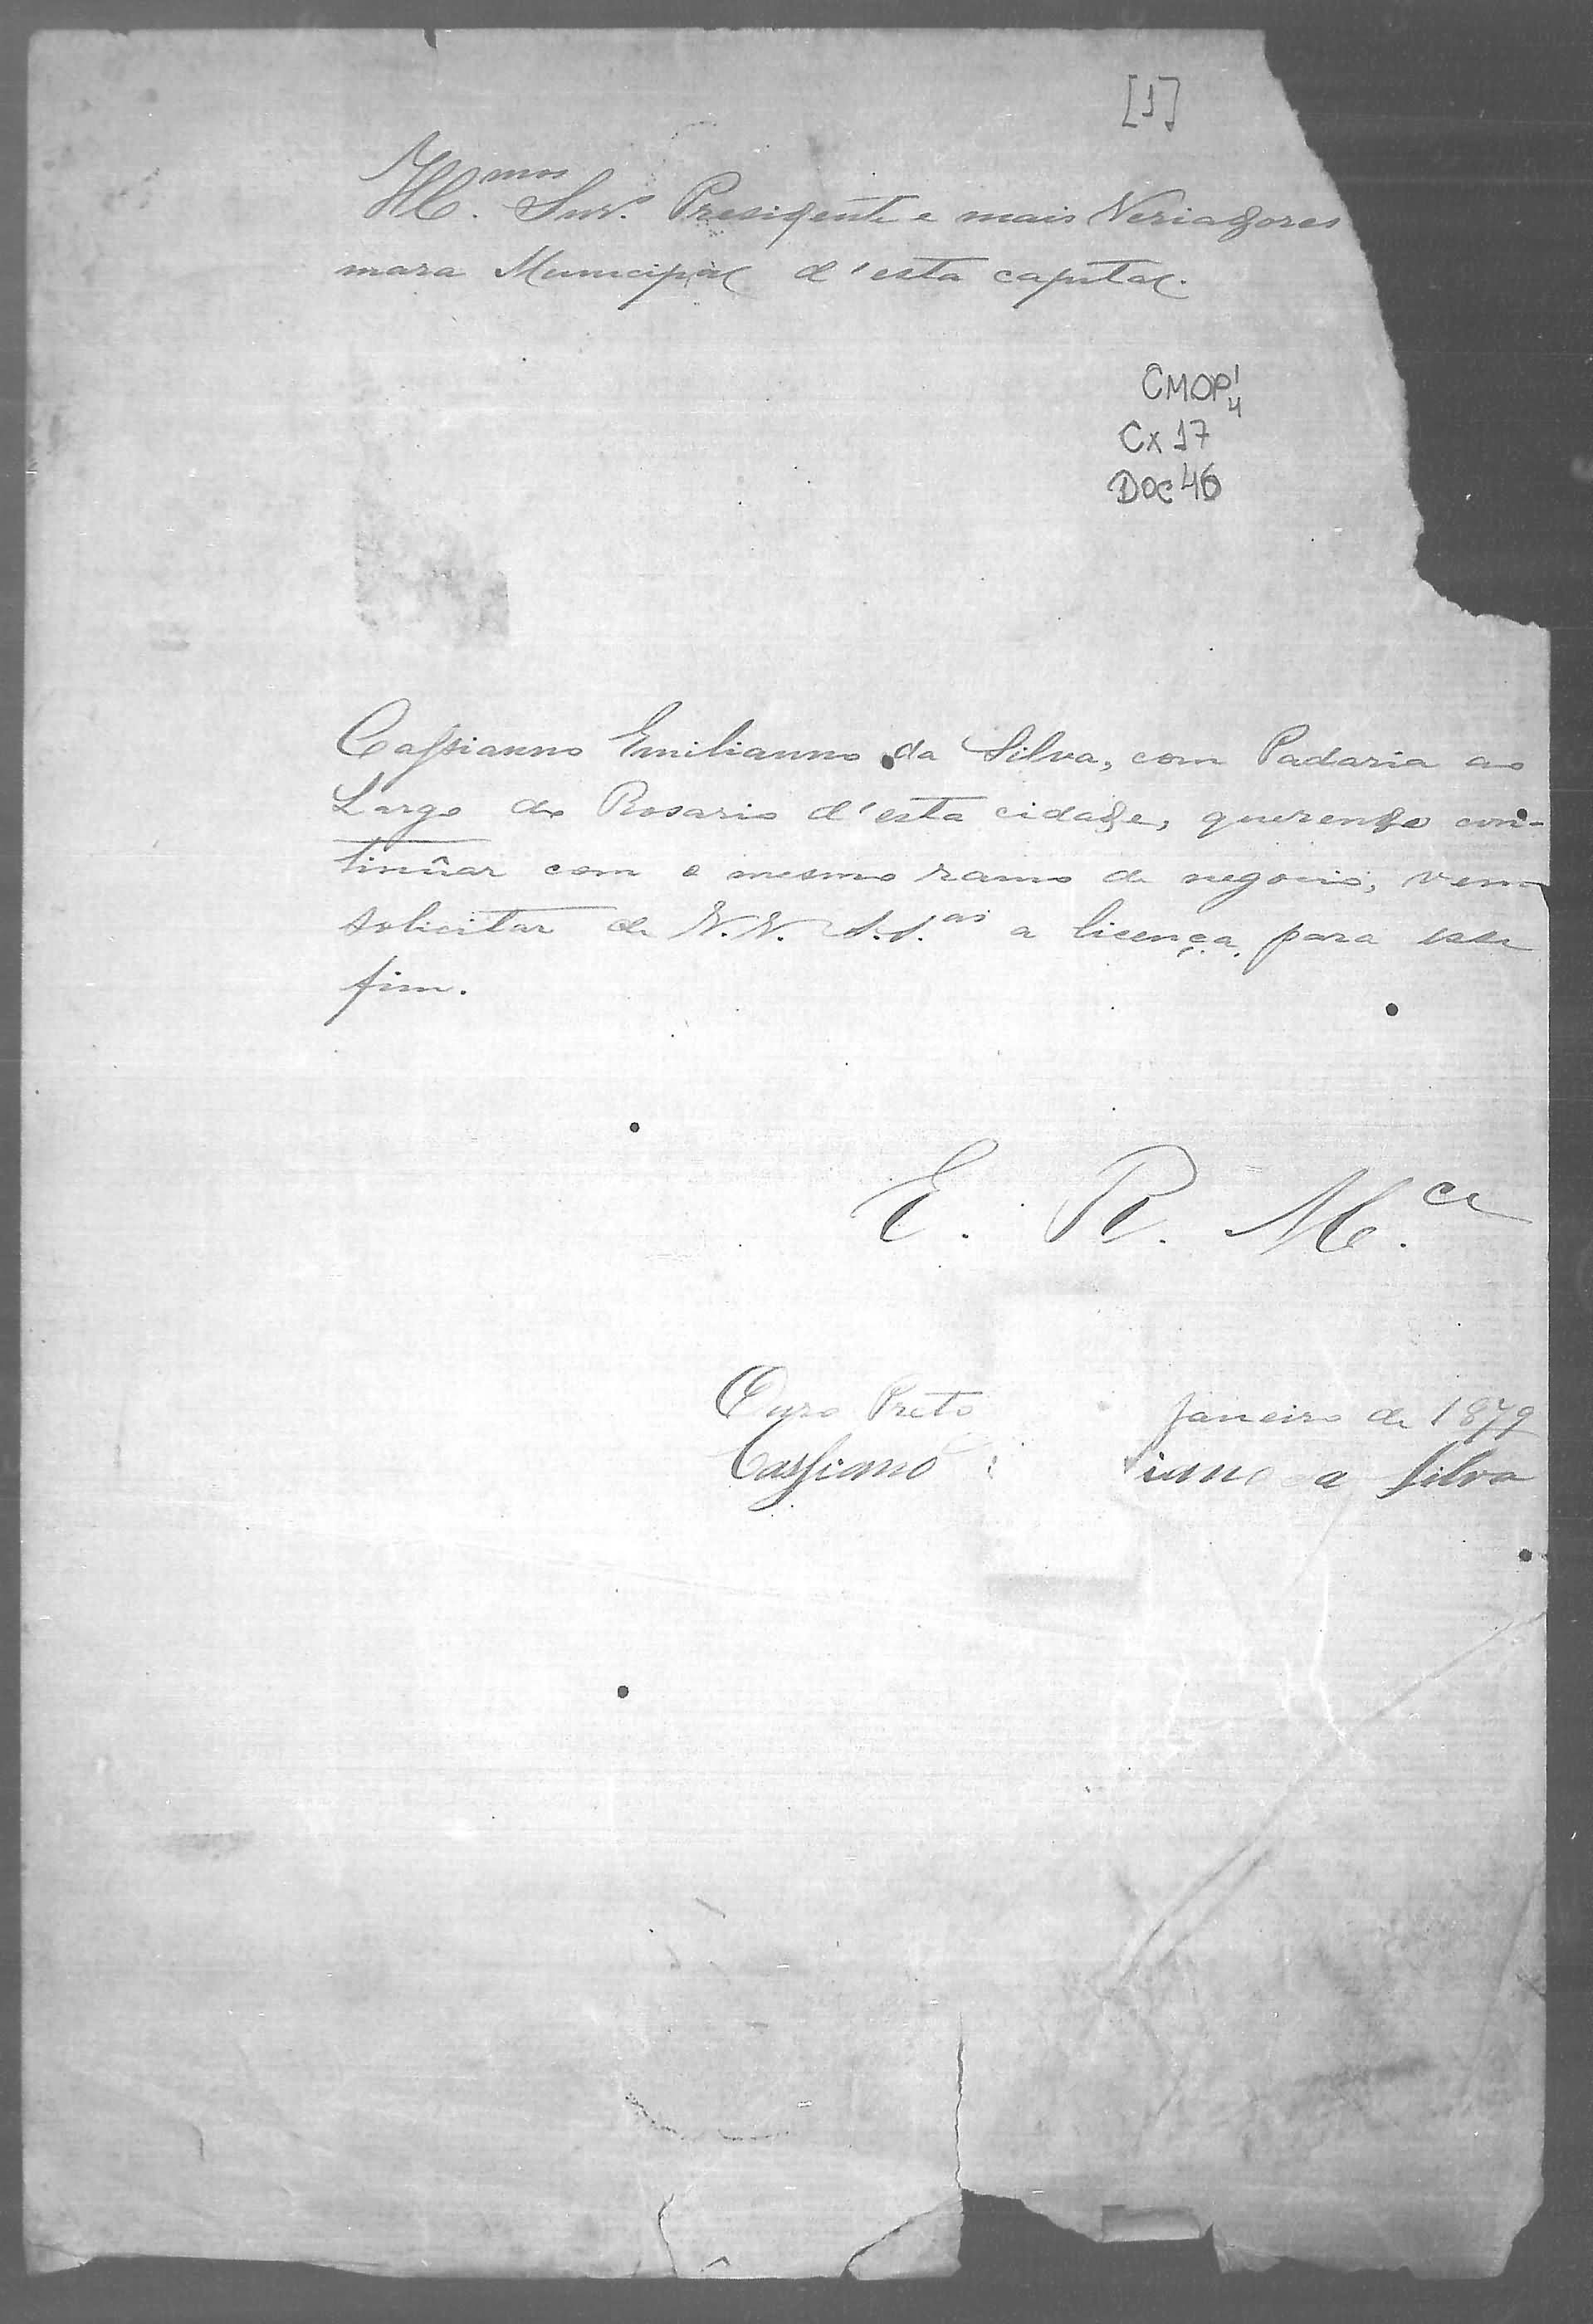 [1]
Ill.mos Snrs. Presidente e mais Veriadores
mara Municipal d'esta capital.
CMOP 1/4
Cx 17
Doc 46
Cassianno Emilianno da Silva, com Padaria ao
Largo do Rosario d'esta cidade, querendo con-
tinûar com o mesmo ramo de negocio, vem
solicitar de V.V. S.S.as a licença para esse
fim.
E. R. M.ce
Ouro Preto Janeiro de 1879
Cassiano iano a Silva